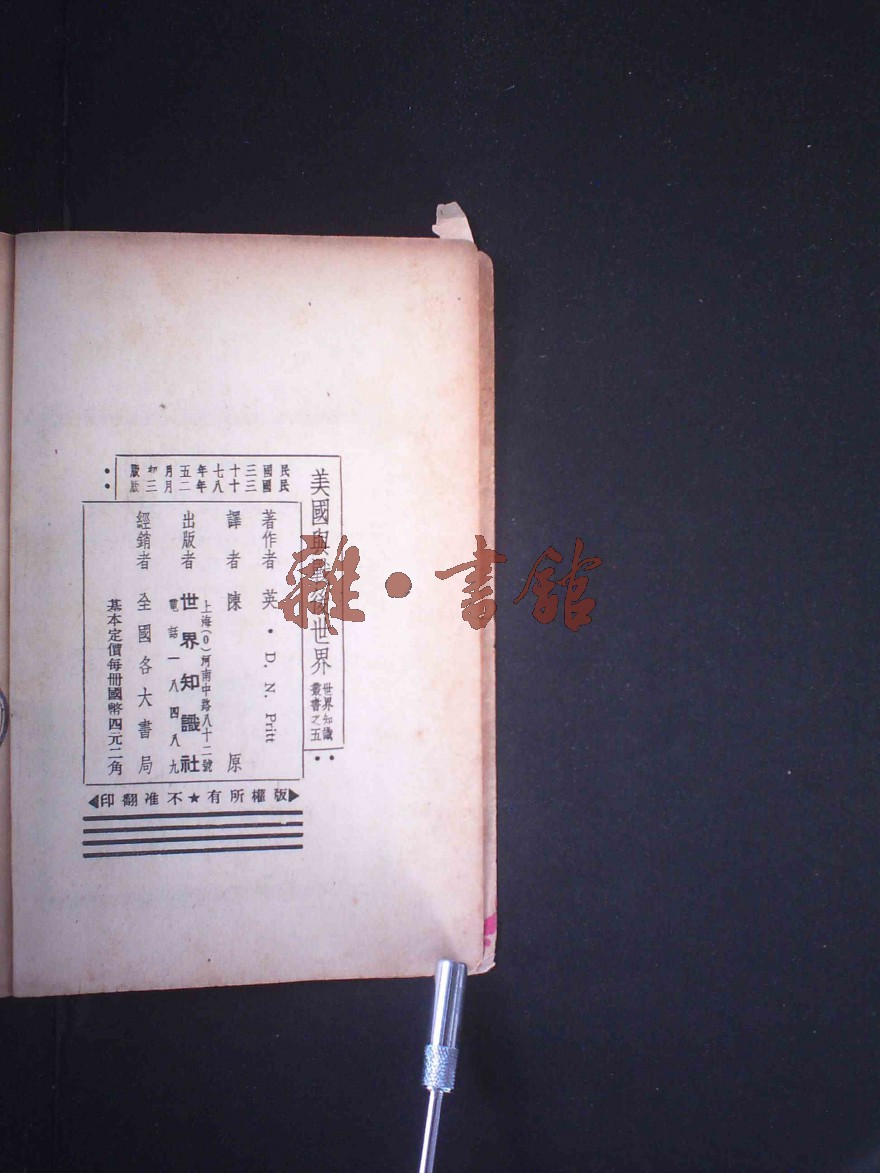 美國與戰後世界
世界知識
叢書之五
民國三十七年五月初版
民國三十八年二月三版
著作者 英 · D. N. Pritt
譯者 陳原
出版者 世界知識社
上海(0)河南中路八十二號
電話一八四八九
經銷者 全國各大書局
基本定價每冊國幣四元二角
版權所有★不准翻印
雜·書館